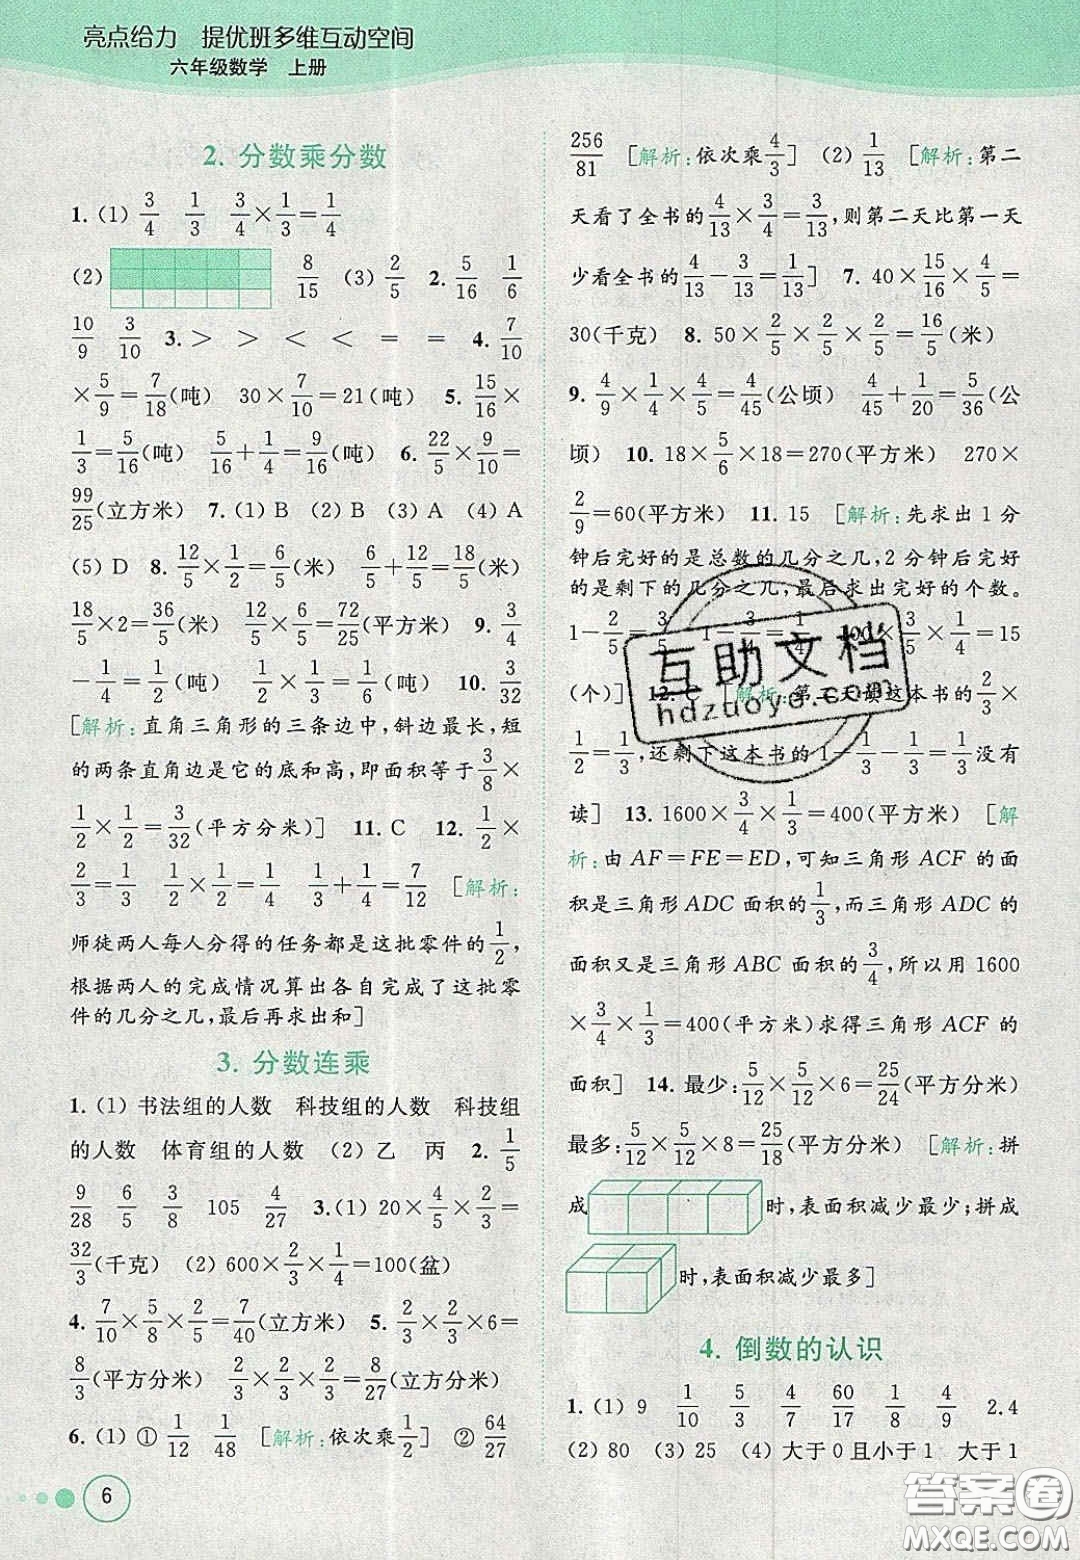 亮点给力 提优班多维互动空间
六年级数学 上册
2. 分数乘分数
1. (1) 3/4 1/3 3/4×1/3=1/4
(2) 8/15 (3) 2/5 2. 5/16 1/6
10/9 3/10 3. > > < < = = 4. 7/10
×5/9=7/18(吨) 30×7/10=21(吨) 5. 15/16×
1/3=5/16(吨) 5/16+1/4=9/16(吨) 6. 22/5×9/10=
99/25(立方米) 7. (1) B (2) B (3) A (4) A
(5) D 8. 12/5×1/2=6/5(米) 6/5+12/5=18/5(米)
18/5×2=36/5(米) 12/5×6/5=72/25(平方米) 9. 3/4
-1/4=1/2(吨) 1-1/2=1/2(吨) 10. 3/32
[解析:直角三角形的三条边中,斜边最长,短
的两条直角边是它的底和高,即面积等于3/8×
1/2×1/2=3/32(平方分米)] 11. C 12. 1/2×
2/3=1/3 1/2×1/2=1/4 1/3+1/4=7/12 [解析:
师徒两人每人分得的任务都是这批零件的1/2,
根据两人的完成情况算出各自完成了这批零
件的几分之几,最后再求出和]
3. 分数连乘
1. (1) 书法组的人数 科技组的人数 科技组
的人数 体育组的人数 (2) 乙 丙 2. 1/5
9/28 6/5 3/8 105 4/27 3.(1) 20×4/5×2/3=
32/3(千克) (2) 600×2/3×1/4=100(盆)
4. 7/10×5/8×2/5=7/40(立方米) 5. 2/3×2/3×6=
8/3(平方分米) 2/3×2/3×2/3=8/27(立方分米)
6. (1) ① 1/12 1/48 [解析:依次乘1/2] ② 64/27
256/81 [解析:依次乘4/3] (2) 1/13 [解析:第二
天看了全书的4/13×3/4=3/13,则第二天比第一天
少看全书的4/13-3/13=1/13] 7. 40×15/16×4/5=
30(千克) 8. 50×2/5×2/5×2/5=16/5(米)
9. 4/9×1/4×4/5=4/45(公顷) 4/45+1/20=5/36(公
顷) 10. 18×5/6×18=270(平方米) 270×
2/9=60(平方米) 11. 15 [解析:先求出1分
钟后完好的是总数的几分之几,2分钟后完好
的是剩下的几分之几,最后求出完好的个数。
1-2/5=3/5 1-3/4=1/4 ×3/5×1/4=15
(个)] 12. C [解析:第二天读这本书的2/3×
1/2=1/3,还剩下这本书的1-1/3-1/3=1/3没有
读] 13. 1600×3/4×1/3=400(平方米) [解
析:由AF=FE=ED,可知三角形ACF的面
积是三角形ADC面积的1/3,而三角形ADC的
面积又是三角形ABC面积的3/4,所以用1600
×3/4×1/3=400(平方米)求得三角形ACF的
面积] 14. 最少:5/12×5/12×6=25/24(平方分米)
最多:5/12×5/12×8=25/18(平方分米) [解析:拼
成 时,表面积减少最少;拼成
时,表面积减少最多]
4. 倒数的认识
1. (1) 9 1/10 5/3 4/7 60/17 1/8 4/9 2.4
(2) 80 (3) 25 (4) 大于0且小于1 大于1
6
互助文档
hdzuoye.com
答案圈
MXQE.COM